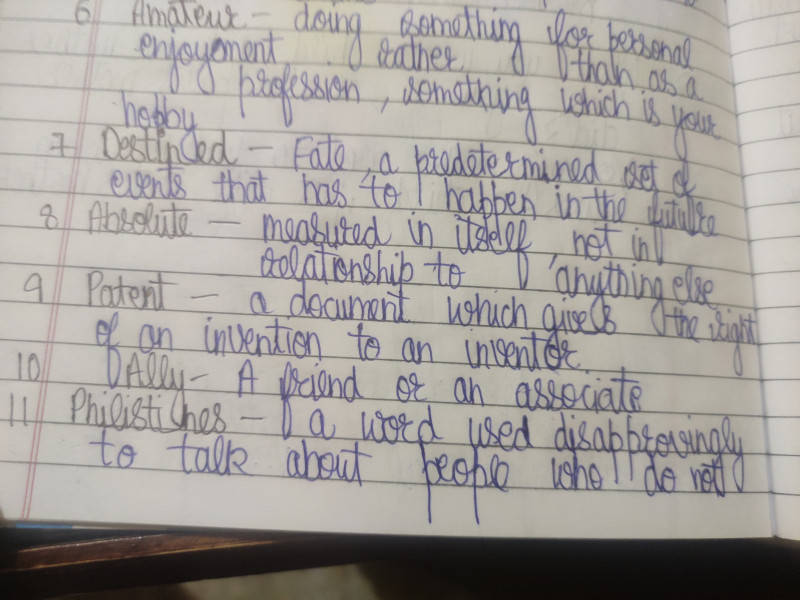 6 Amateur - doing something for personal
enjoyoment rather than as a
profession, something which is your
hobby
7 Destined - Fate, a predetermined set of
events that has to happen in the future
8 Absolute - measured in itself, not in
relationship to anything else
9 Patent - a document which gives the right
of an invention to an inventor
10 Ally - A friend or an associate
11 Philistines - a word used disapprovingly
to talk about people who do not